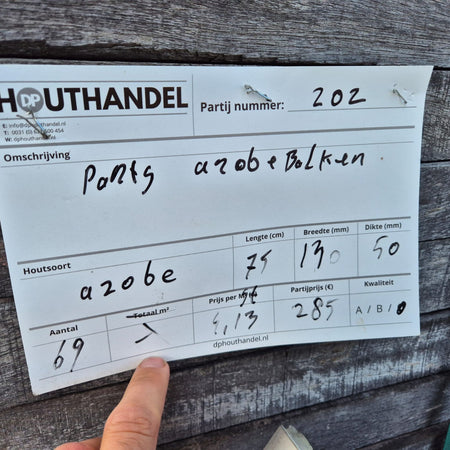 HOUTHANDEL
DP
Partij nummer: 202
E: info@dphouthandel.nl
W: dphouthandel.nl
Omschrijving
Party azobe Balken
Houtsoort
azobe
Lengte (cm)
75
Breedte (mm)
130
Dikte (mm)
50
Aantal
69
Totaal m³
Prijs per
4,13
Partijprijs (€)
285
Kwaliteit
A / B /
dphouthandel.nl